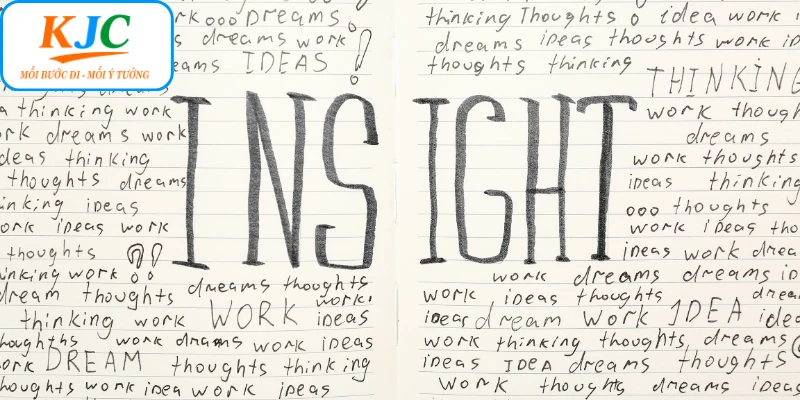 KJC
MỖI BƯỚC DI - MỖI Ý TƯỞNG
rk ooo Dreams
s dreams work
eams IDEAS !
a thinking work
ork dreams work
deas thinking
thoughts dreams
inking ideas
ork ideas work
thoughts
inking work
dream thoughts
dreams thoughts
work!
thinking work WORK ideas
houghths work dreams work ideas
ork DREAM thoughts thinking
houghts work idea work ideas
INSIGHT
thinking Thoughts o idea work i
dreams ideas thoughts work id
thoughts thinking
THINKING
work though
dreams
work thoughts
ideas thinking
ooo thoughts
work ideas tho
ideas work drea
work dreams dreams id
work ideas thoughts dream
ideas dream work IDEA idea
work thinking thoughts dreams
ideas IDEA dreams thoughts
work thoughts dreams ideas